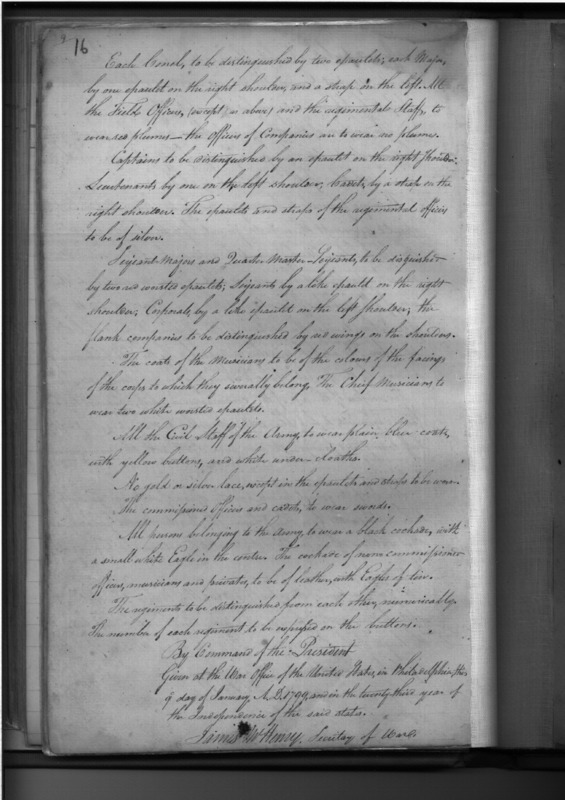 16
Each Conel, to be distinguished by two epaulets; each Major,
by one epaulet on the right shoulder, and a strap on the left. All
the Field Officers, (except as above) and the regimental Staff, to
wear red plumes — the Officers of Companies are to wear no plume.
Captains to be distinguished by an epaulet on the right Shoulder.
Lieutenants by one on the left shoulder, Cadets, by a strap on the
right shoulder. The epaulets and straps of the regimental officers
to be of silver.
Serjeant Majors and Quarter Master Serjeants, to be distinguished
by two red worsted epaulets; Serjeants by a like epaulet on the right
shoulder; Corporals, by a like epaulet on the left Shoulder; the
flank companies to be distinguished by red wings on the shoulders.
The coats of the Musicians to be of the colours of the facings
of the corps to which they severally belong, The Chief Musicians to
wear two white worsted epaulets.
All the Civil Staff of the Army, to wear plain blue coats,
with yellow buttons, and white under cloaths.
No gold or silver lace, except in the epaulets and straps to be worn.
The commissioned Officers and cadets, to wear swords.
All persons belonging to the Army, to wear a black cockade, with
a small white Eagle in the centre. The cockade of noncommissioned
officers, musicians and privates, to be of leather, with Eagles of tin.
The regiments to be distinguished from each other, numerically.
The number of each regiment to be expressed on the buttons.
By Command of the President
Given at the War Office of the United States, in Philadelphia this
9 day of January A.D. 1799, and in the twenty third year of
the Independence of the said states.
James McHenry, Secretary of War.